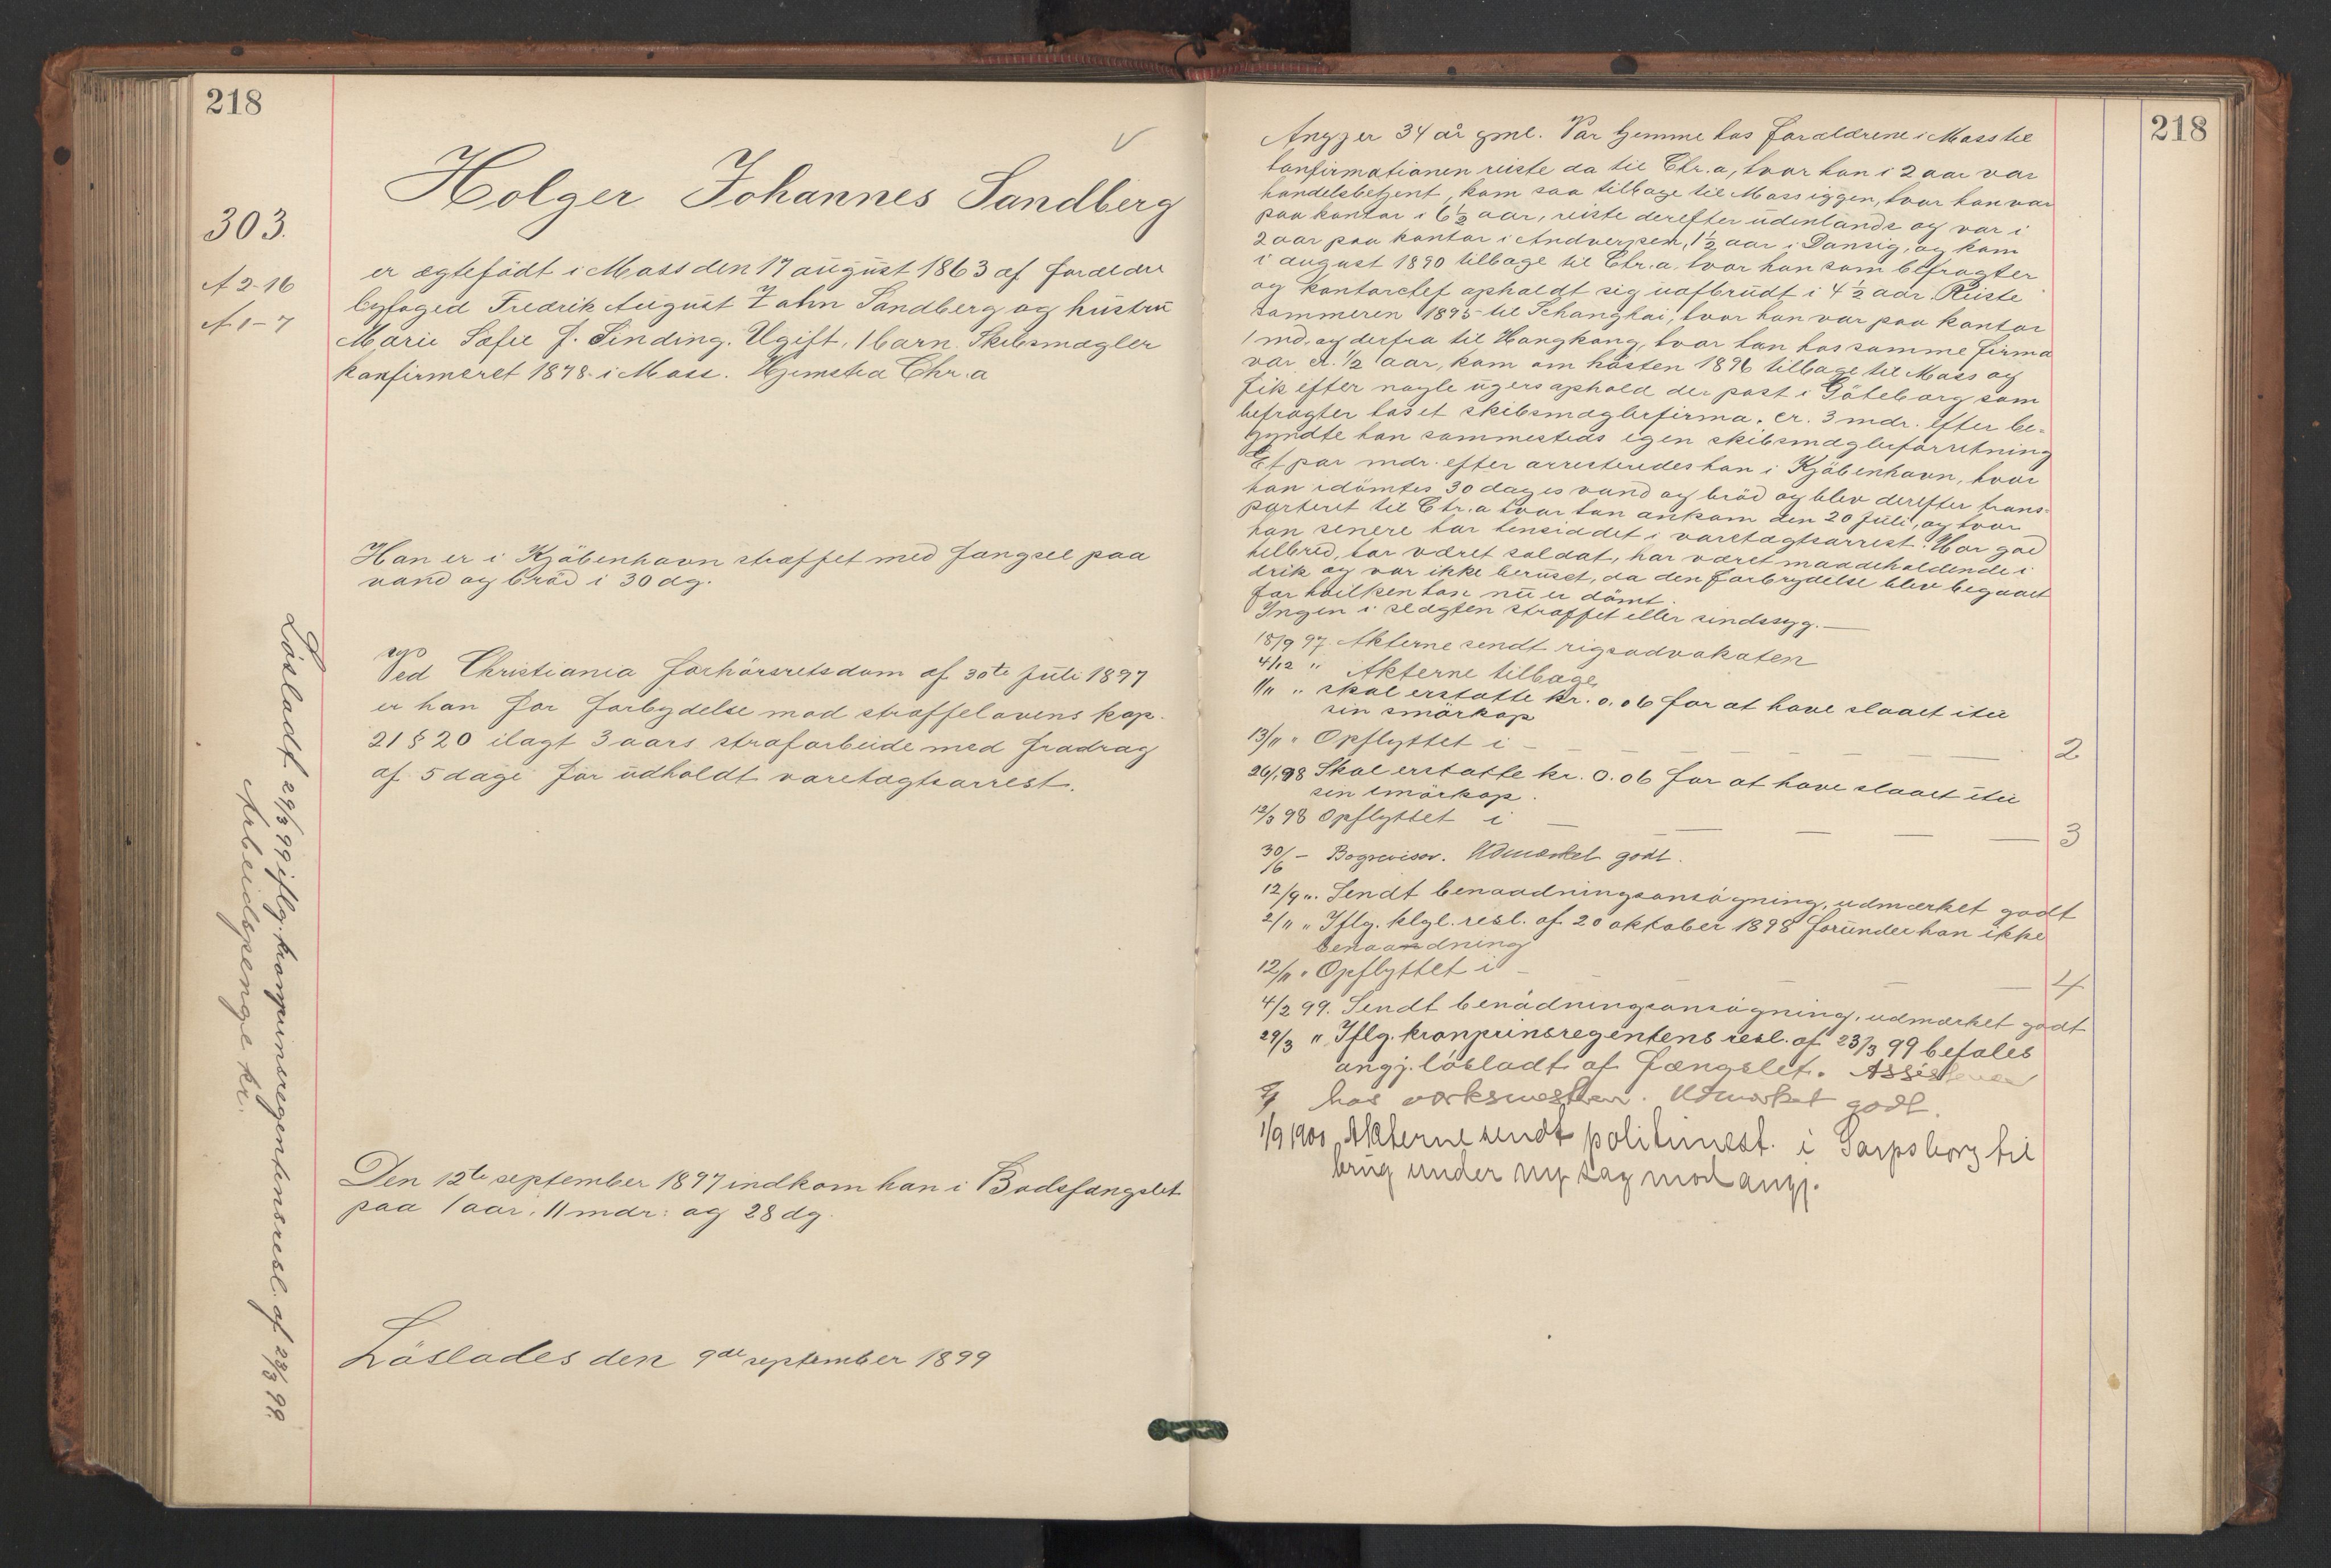 218
303.
A 2-16
A 1-7
Holger Johannes Sandberg
er ægtefödt i Moss den 17 august 1863 af foreldre
byfoged Fredrik August Zahn Sandberg og hustru
Marie Sofie f. Sinding. Ugift, 1 barn. Skibsmægler
konfirmeret 1878 i Moss. Hjemstea Chr.a
Han er i Kjöbenhavn straffet med fængsel paa
vand og bröd i 30 dg.
Ved Christiania forhörsretsdom af 30te juli 1897
er han for forbydelse mod straffelovens kap.
21 § 20 ilagt 3 aars strafarbeide med fradrag
af 5 dage for udholdt varetægtsarrest.
Löslodt 29/3 99 iflg. kronprinsregentensresl. af 23/3 99.
Arbeidspenge kr.
Den 12te september 1897 indkom han i Bodsfængslet
paa 1 aar, 11 mdr: og 28 dg.
Löslades den 9de september 1899
218
Angj er 34 år gml. Var hjemme hos foreldrene i Moss til
konfirmationen reiste da til Chr.a, hvor han i 2 aar var
handelsbetjent, kom saa tilbage til Moss iggen, hvor han var
paa kontor i 6½ aar, reiste derefter udenlands og var i
2 aar paa kontor i Andverpen, 1½ aar i Danzig, og kom
i august 1890 tilbage til Chr.a, hvor han som befragter
og kontorchef opholdt sig uafbrudt i 4½ aar. Reiste
sommeren 1895 til Schanghai, hvor han var paa kontor
1 md. og derfra til Hongkong, hvor han hos samme firma
var ct. ½ aar, kom om hösten 1896 tilbage til Moss og
fik efter nogle ugers ophold der post i Göteborg som
befragter hos et skibsmæglerfirma. cr. 3 mdr. efter be-
gyndte han sammesteds egen skibsmæglerforretning
Et par mdr. efter arresteredes han i Kjöbenhavn, hvor
han idömtes 30 dages vand og bröd og blev derefter trans-
porteret til Chr.a hvor han ankom den 20 juli, og hvor
han senere har hensiddet i varetægtsarrest. Har god
helbred, har været soldat, har været maadeholdende i
drik og var ikke beruset, da den forbrydelse blev begaaet
for hvilken han nu er dömt.
Ingen i slægten straffet eller sindssyg.—
18/9 97. Akterne sendt rigsadvokaten
4/12 " Akterne tilbage
1/11 " skal erstatte kr. 0.06 for at have slaaet itu
sin smörkop
13/11 " Opflyttet i — — — — — 2
26/1 98 Skal erstatte kr. 0.06 for at have slaaet itu
sin smörkop.
12/3 98 Opflyttet i — — — — — 3
30/6 — Bogrevisor. Udmærket godt.
12/9 ". Sendt benaadningsansögning, udmærket godt
2/11 " Iflg. klgl. resl. af 20 oktober 1898 forunder han ikke
benaadning
12/11 " Opflyttet i — — — — — 4
4/2 99. Sendt benådningsansögning, udmærket godt
29/3 " Iflg. kronprinsregentens resl. af 23/3 99 befales
angj. lösladt af fængslet. Assistent
hos værksmesteren. Udmærket godt.
1/9 1900 Akterne sendt politimest. i Sarpsborg til
brug under ny sag mod angj.